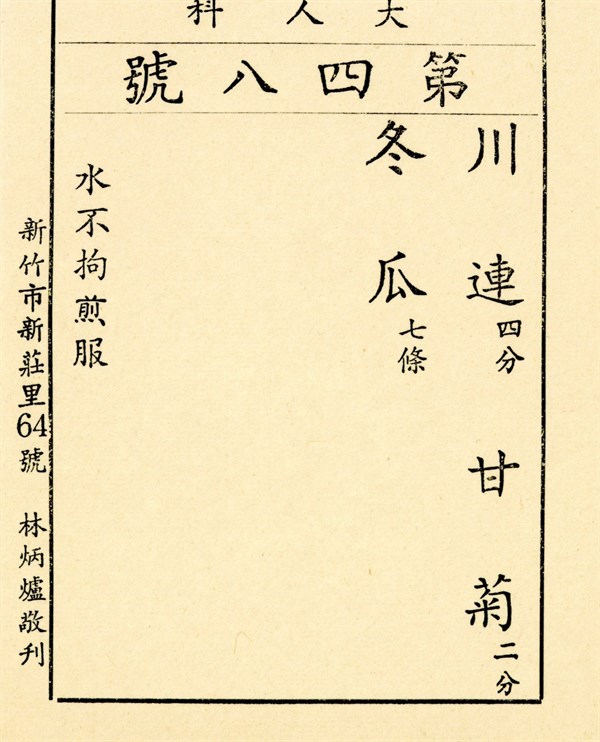 大人科
第四八號
川連四分 甘菊二分
冬瓜七條
水不拘煎服
新竹市新莊里64號 林炳爐敬刋